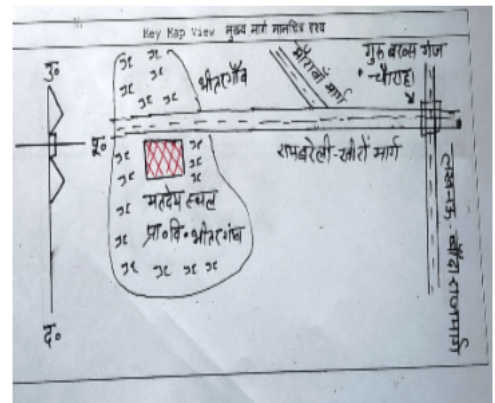 Key Map View मुख्य मार्ग मानचित्र दृश्य
उ०
भीतरगाँव
मौरावाँ मार्ग
गुरु बख्श गंज
चौराहा
पू०
रायबरेली-खीरों मार्ग
मतदेय स्थल
प्रा०वि०भीतरगाँव
लखनऊ-बाँदा राजमार्ग
द०